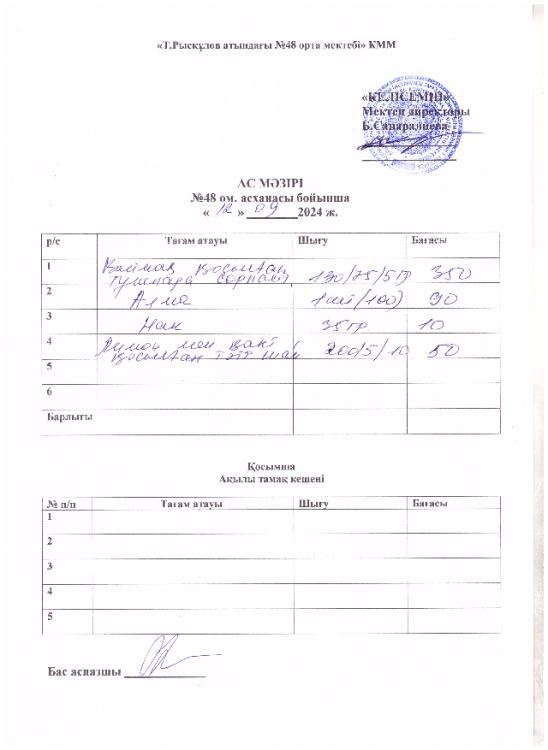 «Т.Рысқұлов атындағы №48 орта мектебі» КММ
«КЕЛІСЕМІН»
Мектеп директоры
АС МӘЗІРІ
№48 ом. асханасы бойынша
« 12 » 09 2024 ж.
р/с Тағам атауы Шығу Бағасы
1 Қаймақ қосылған
тушпара сорпасы 130/75/5 гр 350
2 Алма 1 шт (100) 90
3 Нан 35 гр 10
4 Лимон мен қант
қосылған тәтті шай 200/5/10 50
5
6
Барлығы
Қосымша
Ақылы тамақ кешені
№ п/п Тағам атауы Шығу Бағасы
1
2
3
4
5
Бас аспазшы